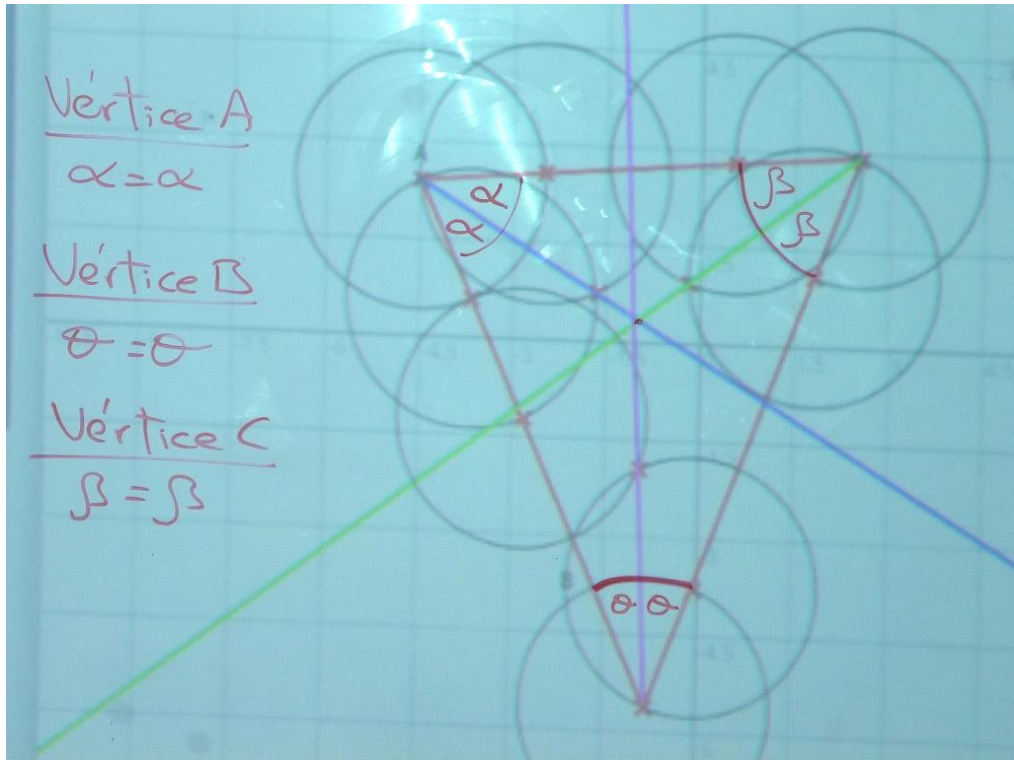 Vértice A
α = α
Vértice B
θ = θ
Vértice C
β = β
A
α
α
β
β
B
θ θ